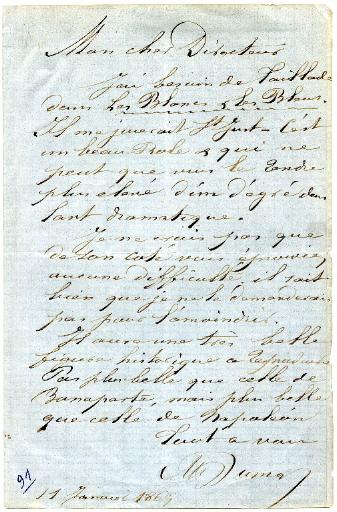 Mon cher Directeur
J'ai besoin de Taillade
dans Les Blancs & les Bleus.
Il me jouerait St Just - C'est
un beau Role & qui ne
peut que vous le rendre
plus élevé d'un degré dans
l'art dramatique.
Je ne crois pas que
de son coté vous éprouviez
aucune difficulté, il sait
bien que je ne le demanderais
pas pour l'amoindrir.
Il aura une très belle
figure historique a
Pas plus belle que celle de
Bonaparte, mais plus belle
que celle de Napoléon
Tout a vous
Alex Dumas
11 Janvier 1869
91